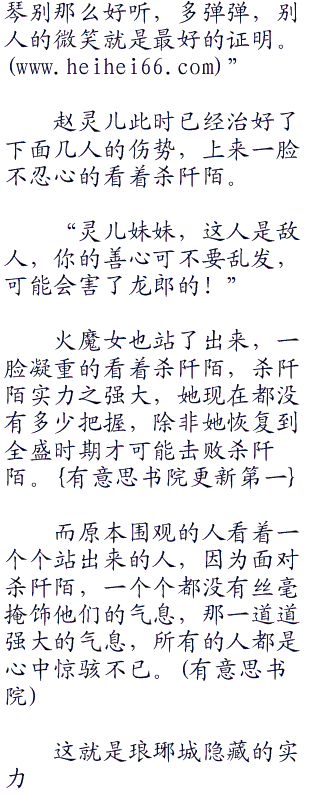 琴别那么好听，多弹弹，别
人的微笑就是最好的证明。
(www.heihei66.com)”
赵灵儿此时已经治好了
下面几人的伤势，上来一脸
不忍心的看着杀阡陌。
“灵儿妹妹，这人是敌
人，你的善心可不要乱发，
可能会害了龙郎的！”
火魔女也站了出来，一
脸凝重的看着杀阡陌，杀阡
陌实力之强大，她现在都没
有多少把握，除非她恢复到
全盛时期才可能去败杀阡
陌。{有意思书院更新第一}
而原本围观的人看着一
个个站出来的人，因为面对
杀阡陌，一个个都没有丝毫
掩饰他们的气息，那一道道
强大的气息，所有的人都是
心中惊骇不已。(有意思书
院)
这就是琅琊城隐藏的实
力